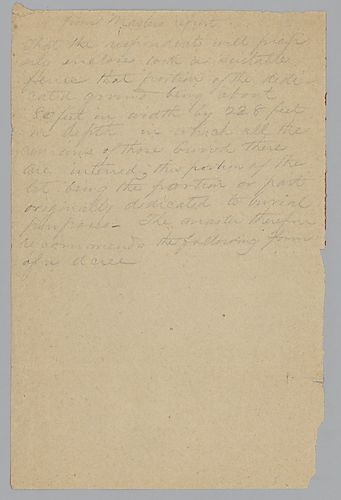 from Masters report
that the respondents will prop
erly enclose with a suitable
fence that portion of the dedi-
cated ground being about
80 feet in width by 228 feet
in depth in which all the
remains of those buried there
are interred, this portion of the
lot being the portion or part
originally dedicated to burial
purposes - The master therefore
recommends the following form
of a decree